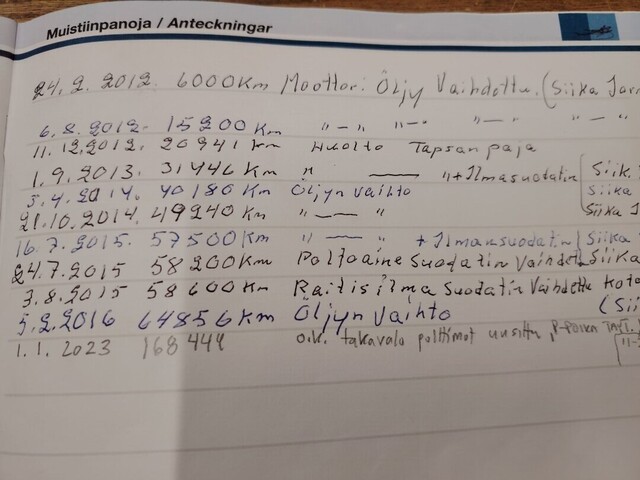 Muistiinpanoja / Anteckningar
24.2.2012. 6000 Km Moottori Öljy Vaihdettu. (Siika Jar
6.8.2012. 15200 Km " — " " — " " — " " — "
11.12.2012. 20941 Km Huolto Tapsan paja
1.9.2013. 31446 Km " —— "+ Ilmasuodatin (Siik.
5.4.2014. 40180 Km Öljyn vaihto (Siika
21.10.2014. 49240 Km " —— " (Siika J
16.7.2015. 57500 Km " —— " + Ilmansuodatin (Siika
24.7.2015 58200 Km Polttoaine Suodatin Vaihdettu Siika
3.8.2015 58600 Km Raitisilma Suodatin Vaihdettu Koto
5.2.2016 64856 Km Öljyn Vaihto (Sii
1.1. 2023 168 444 o.k. takavalo polttimot uusittu,